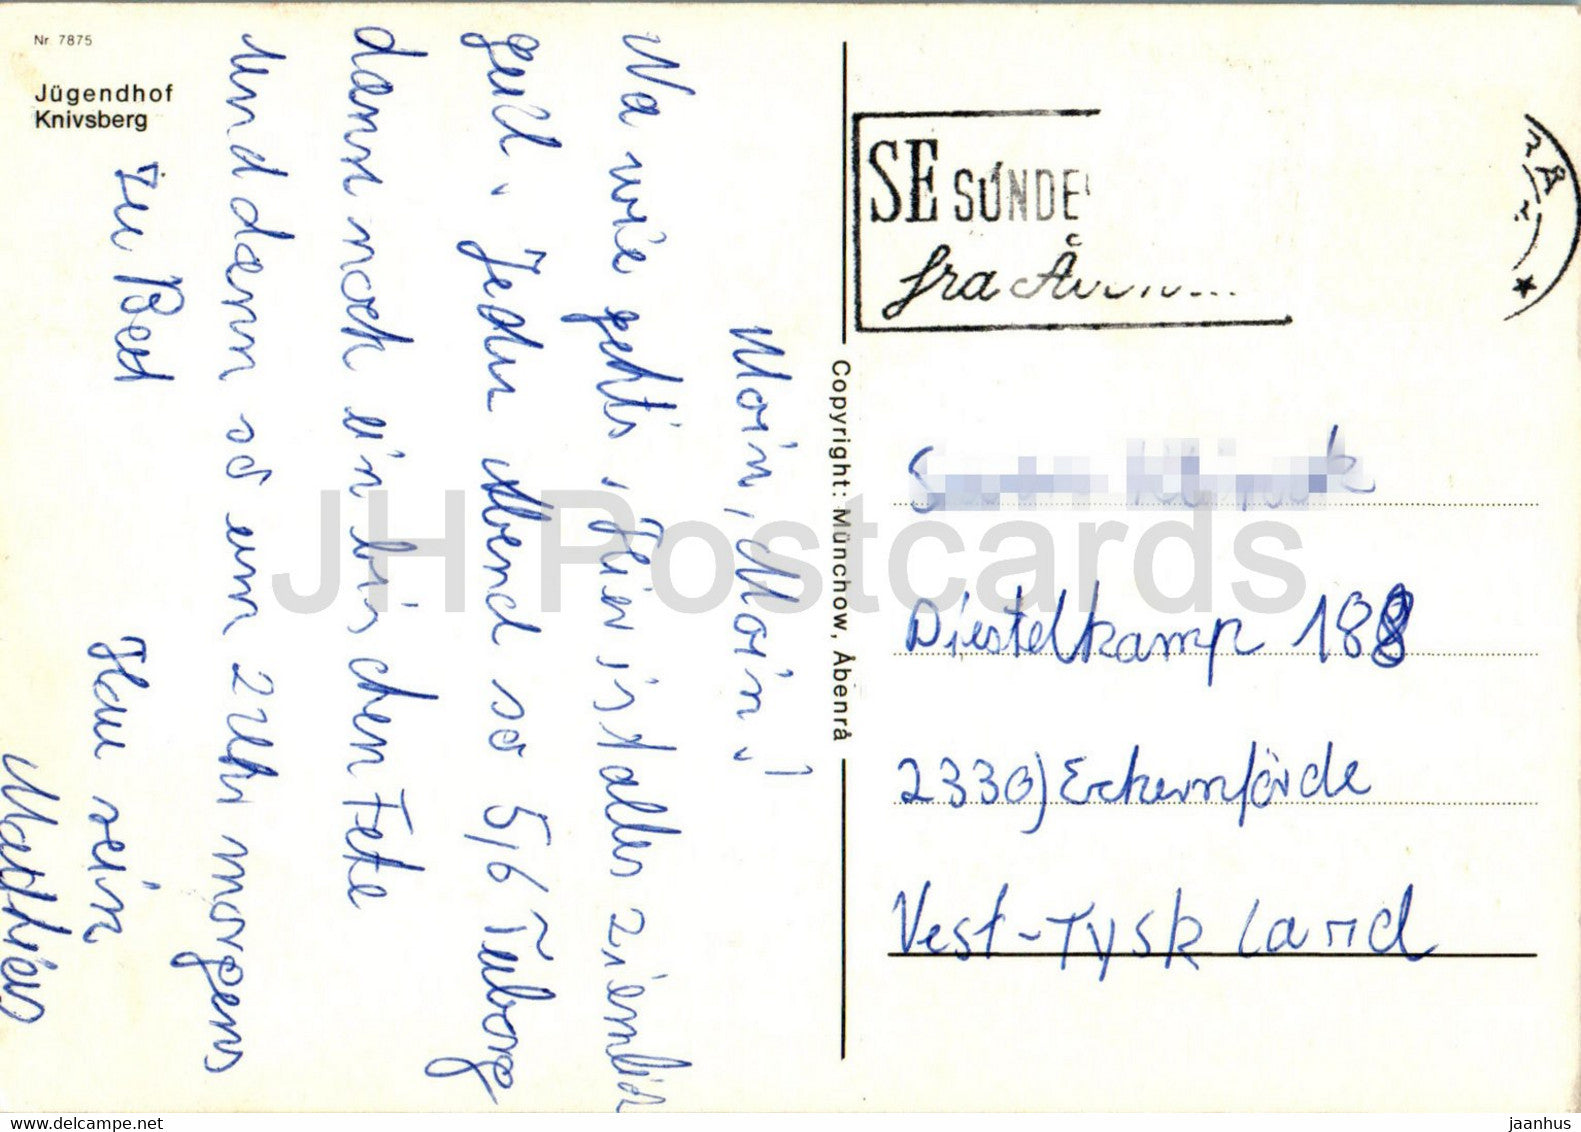 Nr. 7875
Jügendhof
Knivsberg
Moin, Moin!
Na wie geht's, Hier ist alles ziemlich
geil. Jeden Abend so 5/6 Tuborg
dann noch ein bischen Fete
Und dann so um 2 Uhr morgens
zu Bed
Hau rein
Matthias
Copyright: Münchow, Åbenrå
SE SÚNDE
fra
Diestelkamp 188
2330) Eckernförde
Vest-Tyskland
JH Postcards
www.delcampe.net
jaanhus